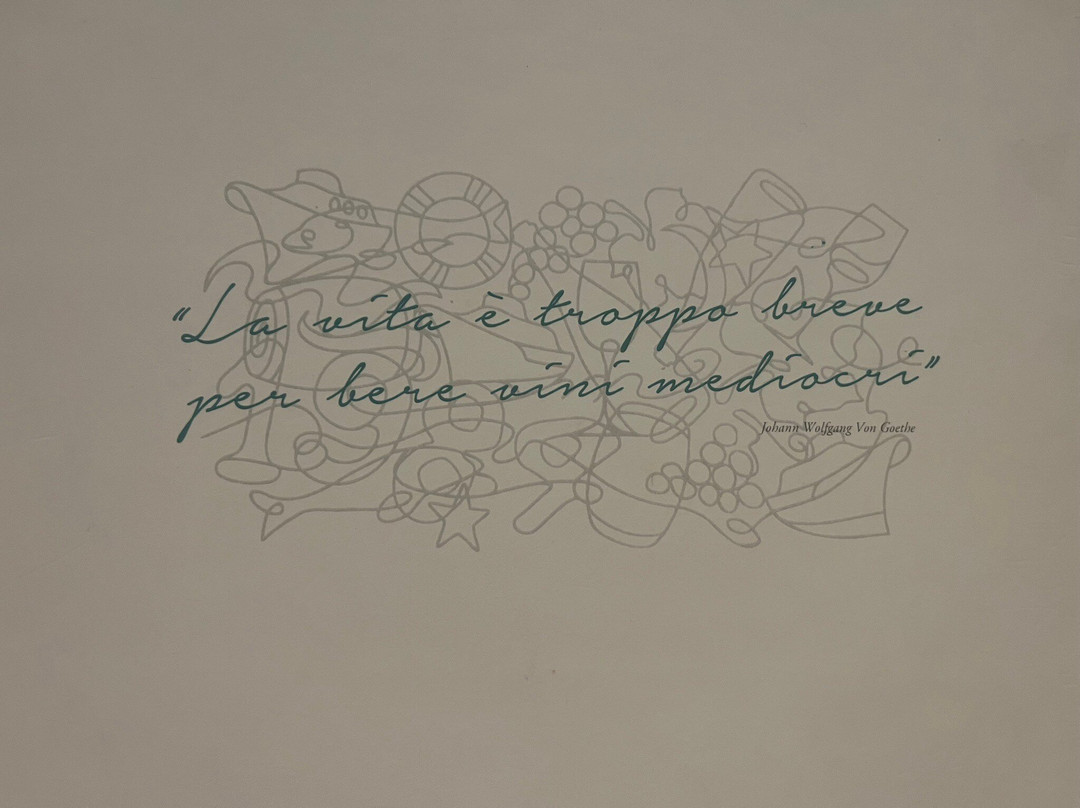 “La vita è troppo breve
per bere vini mediocri”
Johann Wolfgang Von Goethe